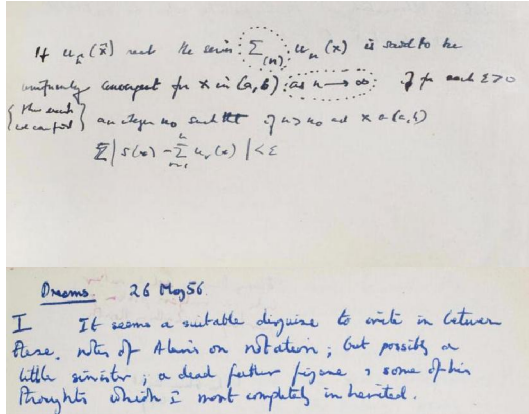 If uₙ(x) real the series Σ₍ₙ₎ uₙ(x) is said to be
uniformly convergent for x in (a,b) as n → ∞ if for each ε>0
{ there exists / we can find } an integer n₀ such that if n > n₀ and x in (a,b)
| S(x) - Σ uᵣ(x) | < ε
Dreams 26 May 56
I It seems a suitable disguise to write in between
these notes of Alan's on notation; but possibly a
little sinister; a dead father figure & some of his
thoughts which I most completely inherited.